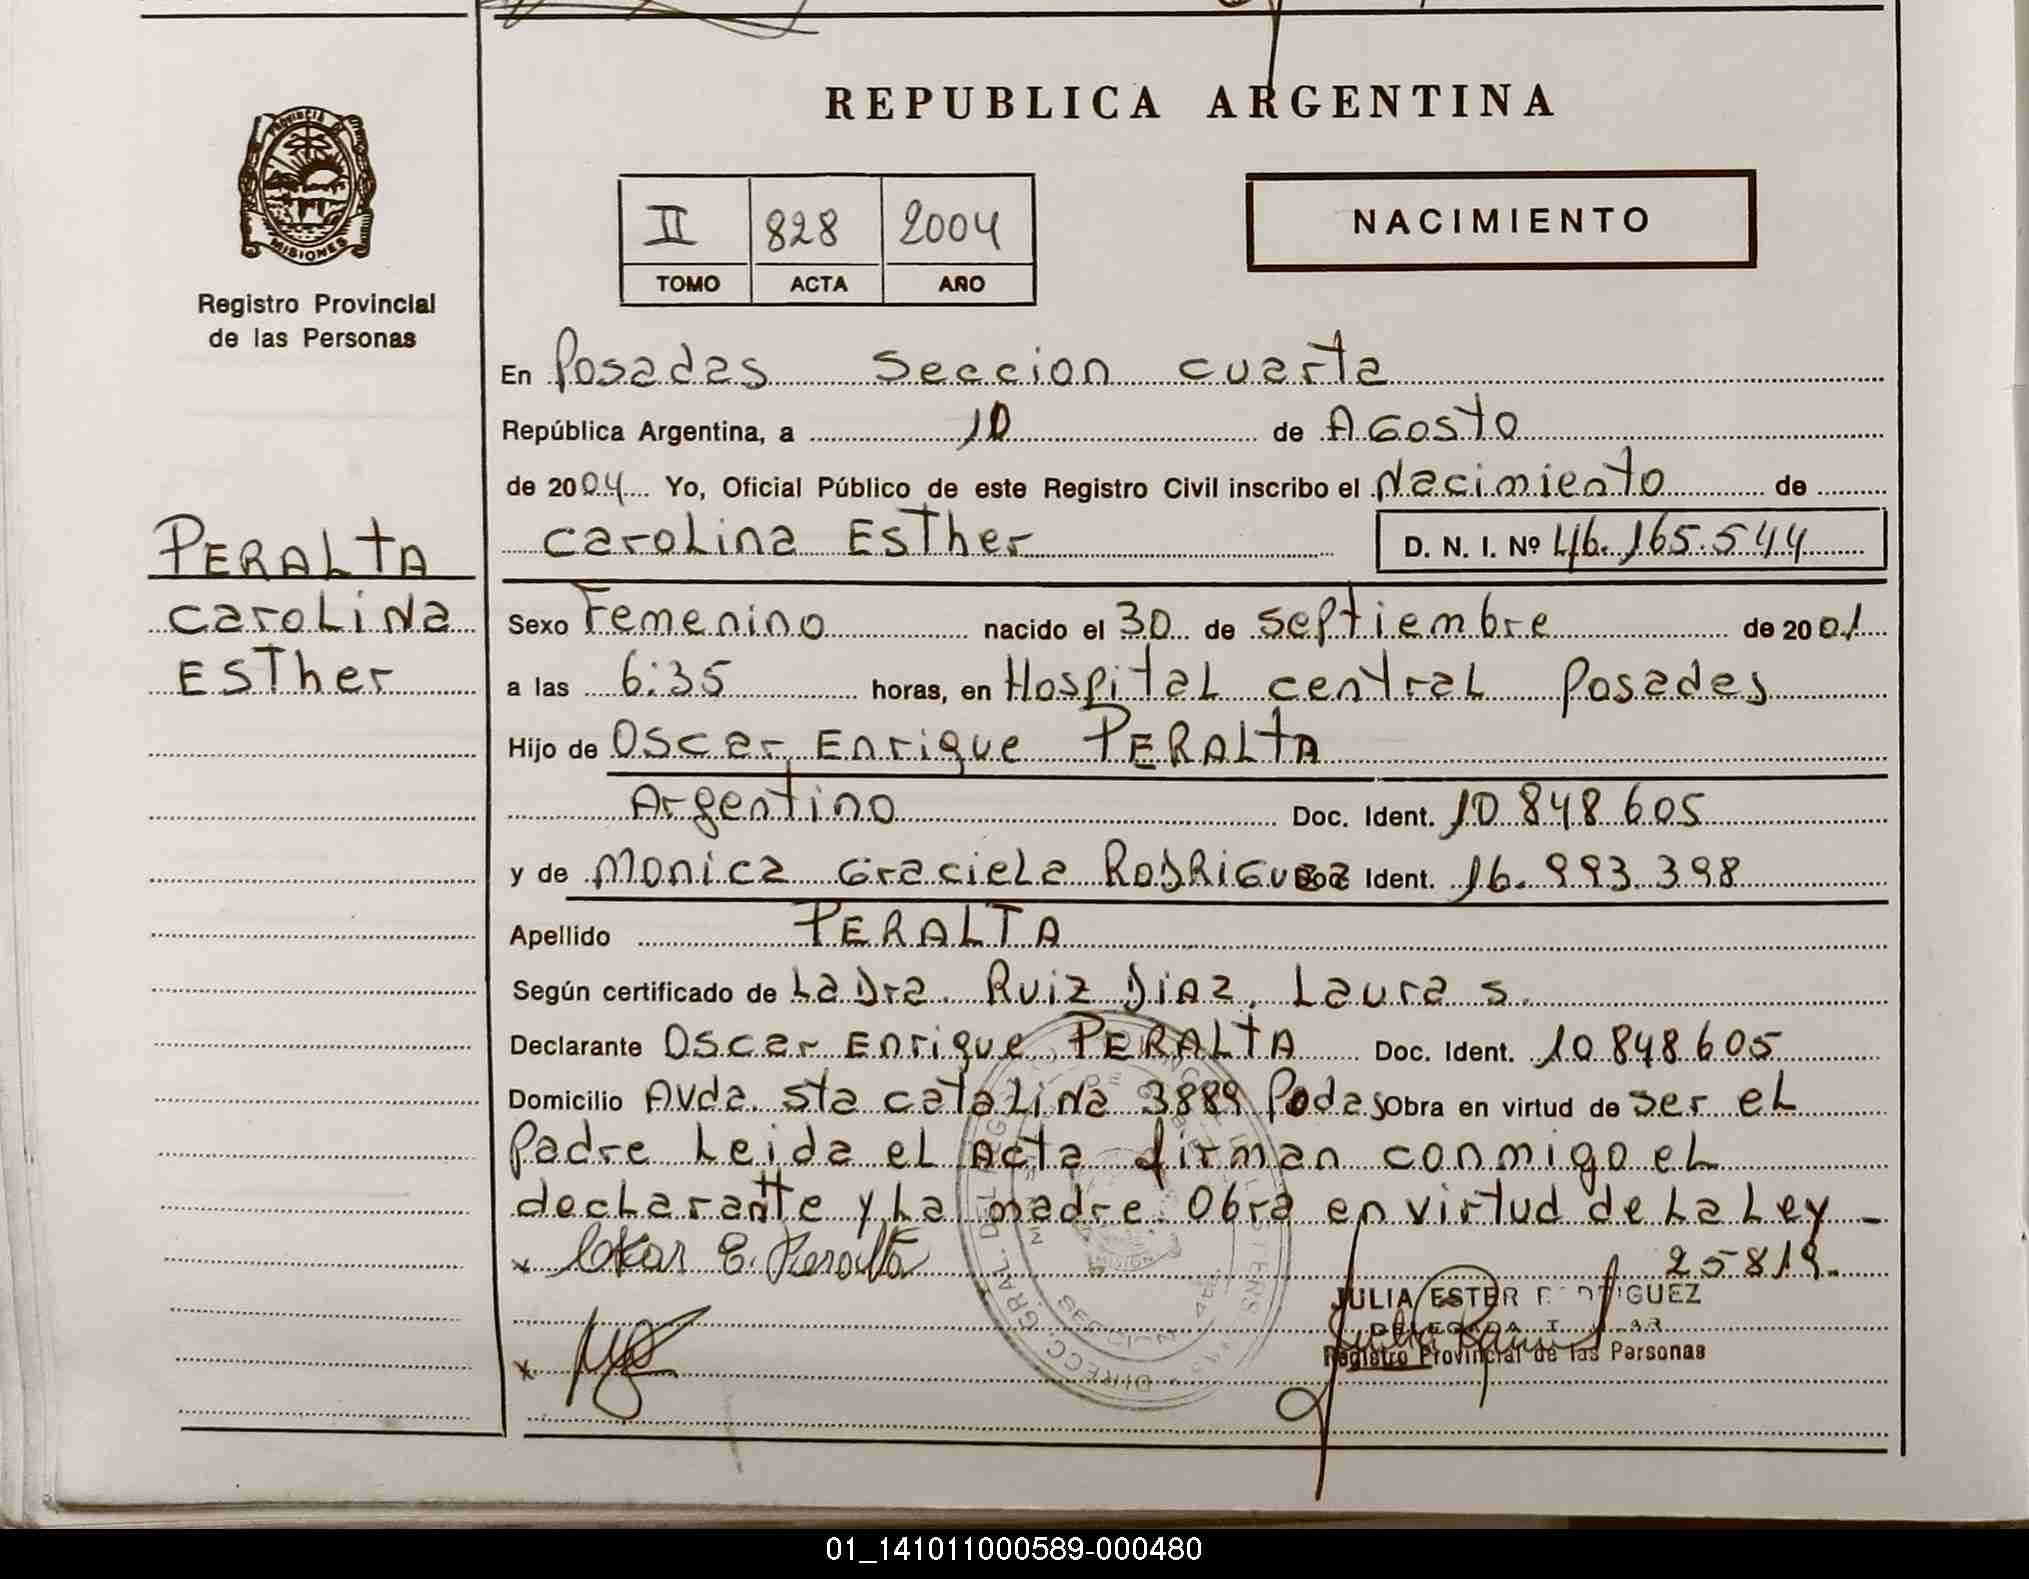 REPUBLICA ARGENTINA
PROVINCIA DE
MISIONES
Registro Provincial
de las Personas
II 828 2004
TOMO ACTA AÑO
NACIMIENTO
En Posadas Seccion cuarta
República Argentina, a 10 de Agosto
de 2004 Yo, Oficial Público de este Registro Civil inscribo el Nacimiento de
Carolina Esther D. N. I. Nº 46.165.544
PERALTA
Carolina
Esther
Sexo Femenino nacido el 30 de septiembre de 2001
a las 6:35 horas, en Hospital central Posadas
Hijo de Oscar Enrique PERALTA
Argentino Doc. Ident. 10 848 605
y de Monica Graciela RODRIGUEZ Doc Ident. 16.993.398
Apellido PERALTA
Según certificado de La Dra. Ruiz Diaz, Laura s.
Declarante Oscar Enrique PERALTA Doc. Ident. 10 848 605
Domicilio Avda. sta catalina 3889 Podas Obra en virtud de ser el
Padre Leida el Acta firman conmigo el
declarante y La madre Obra en virtud de La Ley
25819.
x Oscar E. Peralta
x
JULIA ESTER RODRIGUEZ
Registro Provincial de las Personas
DIRECC. GRAL. DEL
01_141011000589-000480